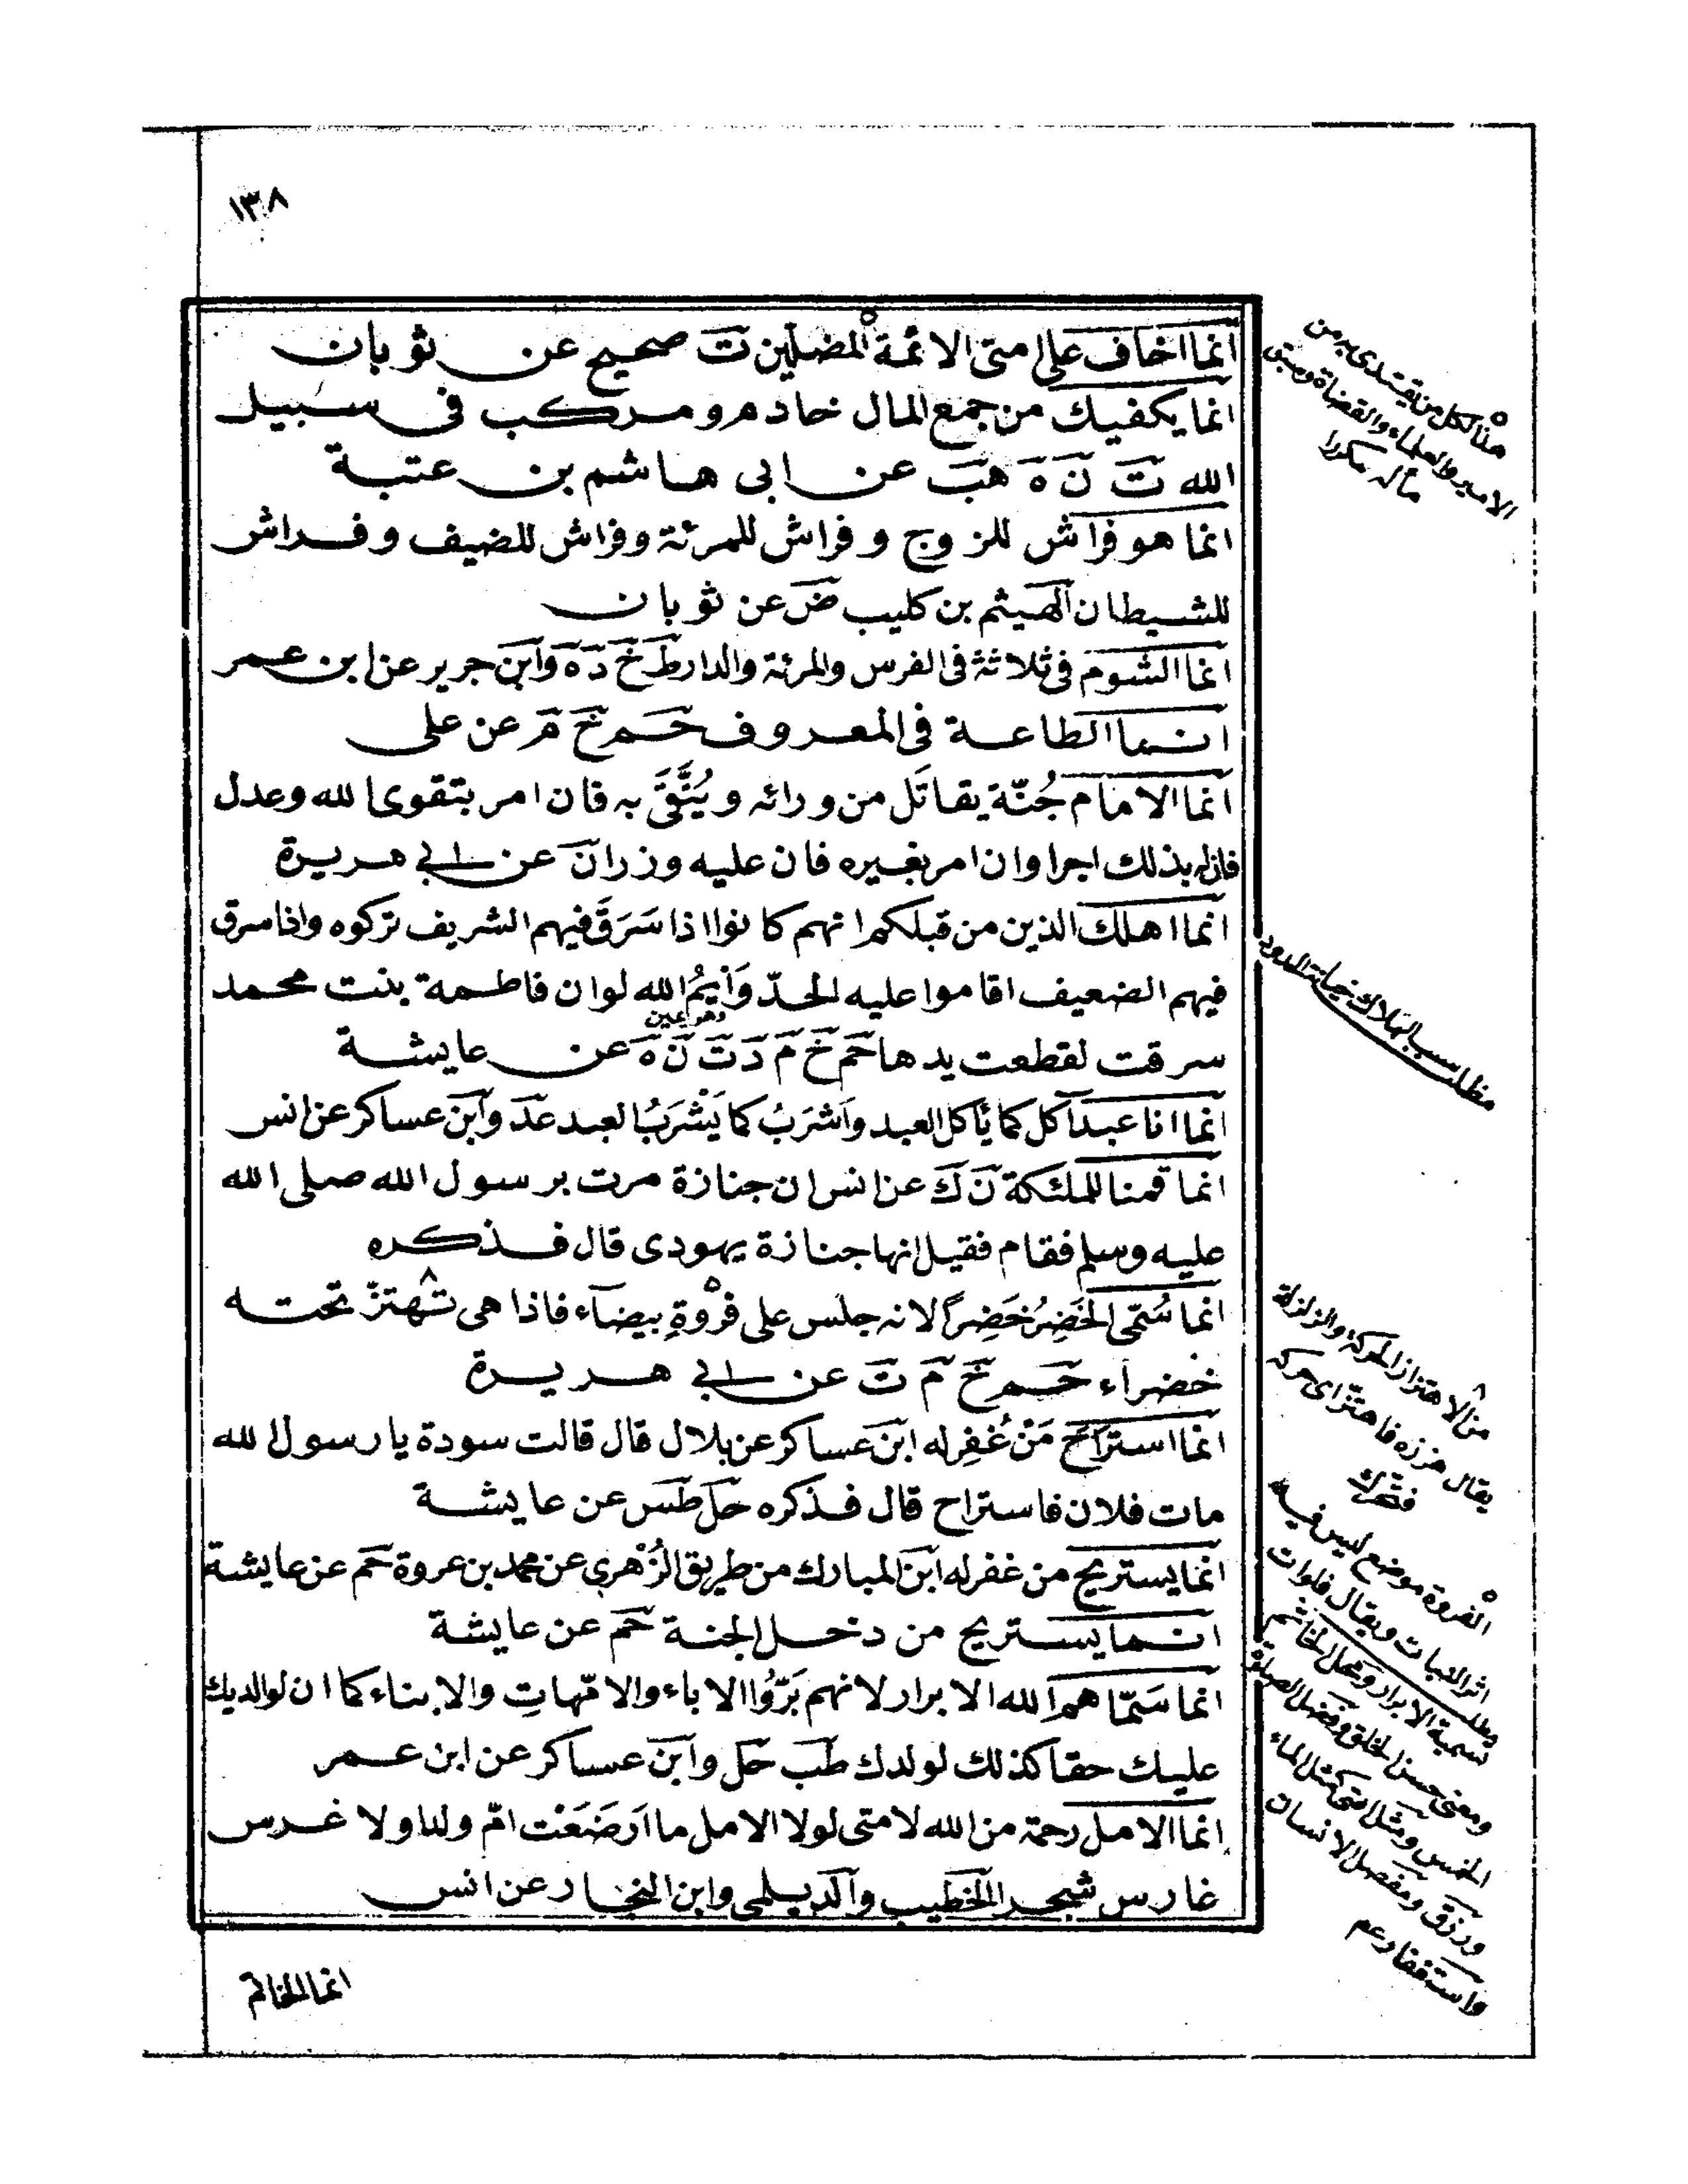 ١٣٨
انما اخاف على امتى الائمة المضلين ت صحيح عن ثوبان
انما يكفيك من جمع المال خادم ومركب فى سبيل
الله ت ن ه هب عن ابى هاشم بن عتبة
انما هو فراش للزوج وفراش للمرئة وفراش للضيف وفراش
للشيطان الهيثم بن كليب ض عن ثوبان
انما الشوم فى ثلاثة فى الفرس والمرئة والدار ط خ د ه وابن جرير عن ابن عمر
انما الطاعة فى المعروف حم خ م عن على
انما الامام جُنّة يقاتَل من ورائه ويُتَّقَى به فان امر بتقوى الله وعدل
فان له بذلك اجرا وان امر بغيره فان عليه وزرا ن عن ابي هريرة
انما اهلك الذين من قبلكم انهم كانوا اذا سَرَقَ فيهم الشريف تركوه واذا سرق
فيهم الضعيف اقاموا عليه الحدّ وَأيمُ الله لو ان فاطمة بنت محمد
سرقت لقطعت يدها حم خ م د ت ن ه عن عايشة
انما انا عبد آكل كما يأكل العبد واَشرَبُ كما يَشْرَبُ العبد عد وابن عساكر عن انس
انما قمنا للملئكة ن ك عن انس ان جنازة مرت برسول الله صلى الله
عليه وسلم فقام فقيل انها جنازة يهودى قال فذكره
انما سُمّى الخَضِرُ خَضِرًا لانه جلس على فرْوةٍ بيضآء فاذا هى تهتزّ تحته
خضراء حم خ م ت عن ابي هريرة
انما استراح مَنْ غُفِر له ابن عساكر عن بلال قال قالت سودة يا رسول الله
مات فلان فاستراح قال فذكره حل طس عن عايشة
انما يستريح من غفر له ابن المبارك من طريق الزُهْرى عن محمد بن عروة حم عن عايشة
انما يستريح من دخل الجنة حم عن عايشة
انما سَمّاهم الله الابرار لانهم بَرُّوا الاباء والامّهاتِ والابناء كما ان لوالديك
عليك حقا كذلك لولدك طب حل وابن عساكر عن ابن عمر
انما الامل رحمة من الله لامتى لولا الامل ما اَرضَعَت امّ ولدا ولا غرس
غارس شجرا الخطيب والديلمى وابن النجار عن انس
انما الخاتم
هنا لكل من يقتدى به من
الامير والعلماء والقضاة
مآله مكررا
مطلب سبب الهلاك خيانة الحدود
من الاهتزاز الحركة والزلزلة
يقال هززه فاهتز اى حركه
فتحرك
الفروة موضع ليس فيه
اثر النبات ويقال فلوات
مطلب
تسمية الابرار ومحل الخاتم
ومعنى حسن الخلق وفضل الصلوة
الخمس ومثل امتى كمثل الماء
ورزق ومفصل الانسان